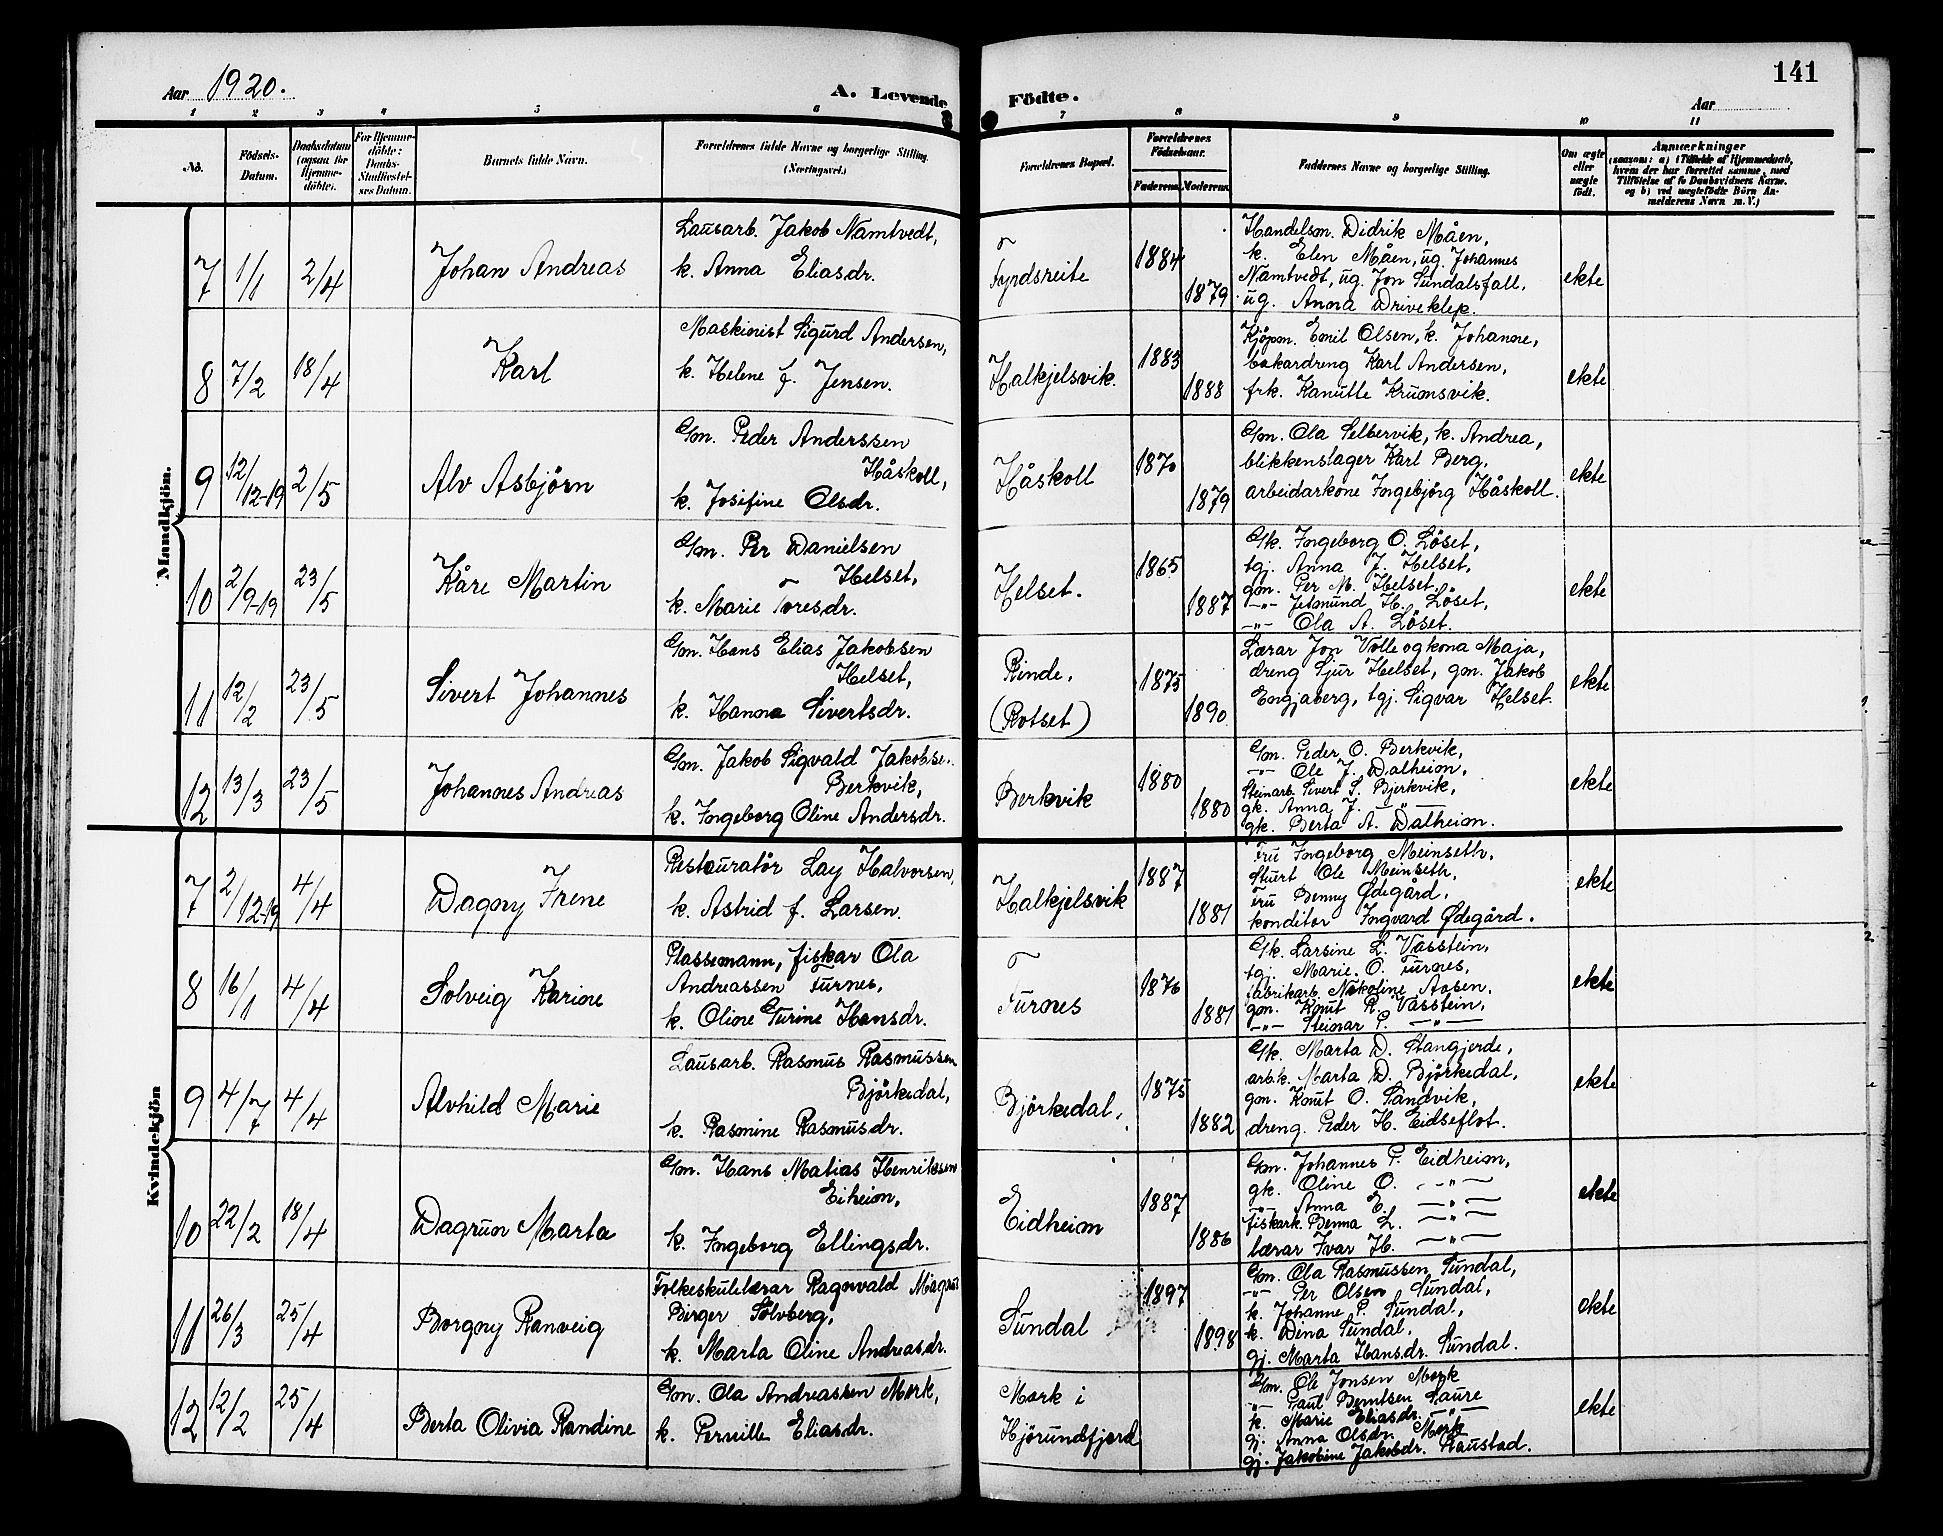 141
Aar 1920.
A. Levende Födte.
Aar
1 2 3 4 5 6 7 8 9 10 11
No.
Födsels-Datum.
Daabsdatum (ogsaa for Hjemme-döbte).
For Hjemme-döbte: Daabs-Stadfæstelses Datum.
Barnets fulde Navn.
Forældrenes fulde Navne og borgerlige Stilling.
(Næringsvei.)
Forældrenes Bopæl.
Forældrenes Födselsaar.
Faderens. Moderens.
Faddernes Navne og borgerlige Stilling.
Om ægte eller uægte födt.
Anmærkninger
(saasom: a) i Tilfælde af Hjemmedaab,
hvem der har forrettet samme, med
Tilföielse af to Daabsvidners Navne,
og b) ved uægtefödte Börn An-
melderens Navn m. V.)
Mandkjön.
7 1/1 2/4 Johan Andreas
Lausarb. Jakob Namtvedt,
k. Anna Eliasdr.
Fyrdsreite
1884
1879
Handelsm. Didrik Måen,
k. Elen Måen, ug. Johannes
Namtvedt, ug. Jon Sundalsfall,
ug. Anna Driveklep.
ekte
8 7/2 18/4 Karl
Maskinist Sigurd Andersen,
k. Helene f. Jensen.
Halkjelsvik.
1883
1888
Kjöpm. Emil Olsen, k. Johanne,
bakardreng Karl Andersen,
frk. Kanutte Krumsvik.
ekte
9 12/12-19 2/5 Alv Asbjörn
Gm. Peder Anderssen
Håskoll,
k. Josefine Olsdr.
Håskoll
1870
1879
Gm. Ola Selbervik, k. Andrea,
blikkenslager Karl Berg,
arbeidarkone Ingebjörg Håskoll.
ekte
10 2/9-19 23/5 Kåre Martin
Gm. Per Danielsen
Helset,
k. Marie Toresdr.
Helset.
1865
1887
Gk. Ingeborg O. Löset,
tgj. Anna J. Helset,
gm. Per M. Helset,
-"- Jetmund H. Löset,
-"- Ola A. Löset.
ekte
11 12/2 23/5 Sivert Johannes
Gm. Hans Elias Jakobsen
Helset,
k. Hanna Sivertsdr.
Rinde,
(Rotset)
1875
1890
Lærar Jon Volle og kona Maja,
dreng Sjur Helset, gm. Jakob
Engjaberg, tgj. Sigvar Helset.
ekte
12 13/3 23/5 Johannes Andreas
Gm. Jakob Sigvald Jakobse..
Berkvik,
k. Ingeborg Oline Andersdr.
Berkvik
1880
1880
Gm. Peder O. Berkvik,
-"- Ole J. Dalheim,
Steinarb. Sivert S. Bjerkvik,
gk. Anna J. -"-
gk. Berta A. Dalheim.
ekte
Kvindekjön
7 2/12-19 4/4 Dagny Irene
Restauratör Lay Halvorsen,
k. Astrid f. Larsen.
Halkjelsvik
1887
1881
Fru Ingeborg Meinseth,
Sturt Ole Meinseth,
Fru Benny Ødegård,
konditor Ingvard Ødegård.
ekte
8 16/1 4/4 Solveig Karine
Plassemann, fiskar Ola
Andreassen Furnes,
k. Oline Turine Hansdr.
Furnes
1876
1881
Gk. Larsine L. Vasstein,
tgj. Marie O. Furnes,
fabrikarb. Nikoline Aasen,
gm. Knut R. Vasstein,
-"- Steinar P. -"-
ekte
9 4/7 4/4 Alvhild Marie
Lausarb. Rasmus Rasmussen
Björkedal,
k. Rasmine Rasmusdr.
Björkedal,
1875
1882
Gk. Marta D. Stangjerde,
arb.k. Marta D. Björkedal,
gm. Knut O. Sandvik,
dreng. Peder H. Eidseflot.
ekte
10 22/2 18/4 Dagrun Marta
Gm. Hans Matias Henriksen
Eiheim,
k. Ingeborg Ellingsdr.
Eidheim
1887
1886
Gm. Johannes P. Eidheim,
gk. Oline O. -"-
-"- Anna E. -"-
fiskark. Benna L. -"-
lærar Ivar H. -"-
ekte
11 26/3 25/4 Borgny Ranveig
Folkeskulelærar Ragnvald Magnus
Birger Sölvberg,
k. Marta Oline Andreasdr.
Sundal
1897
1898
Gm. Ola Rasmussen Sundal,
-"- Per Olsen Sundal,
k. Johanne P. Sundal,
k. Dina Sundal,
gj. Marta Hansdr. Sundal.
ekte
12 12/2 25/4 Berta Olivia Randine
Gm. Ola Andreassen Mork,
k. Pernille Eliasdr.
Mork i
Hjörundfjord
Gm. Ole Jonsen Mork
-"- Paul Berntsen Saure
k. Marie Eliasdr. -"-
gj. Anna Olsdr. Mork
gj. Jakobine Jakobdr. Raustad.
ekte